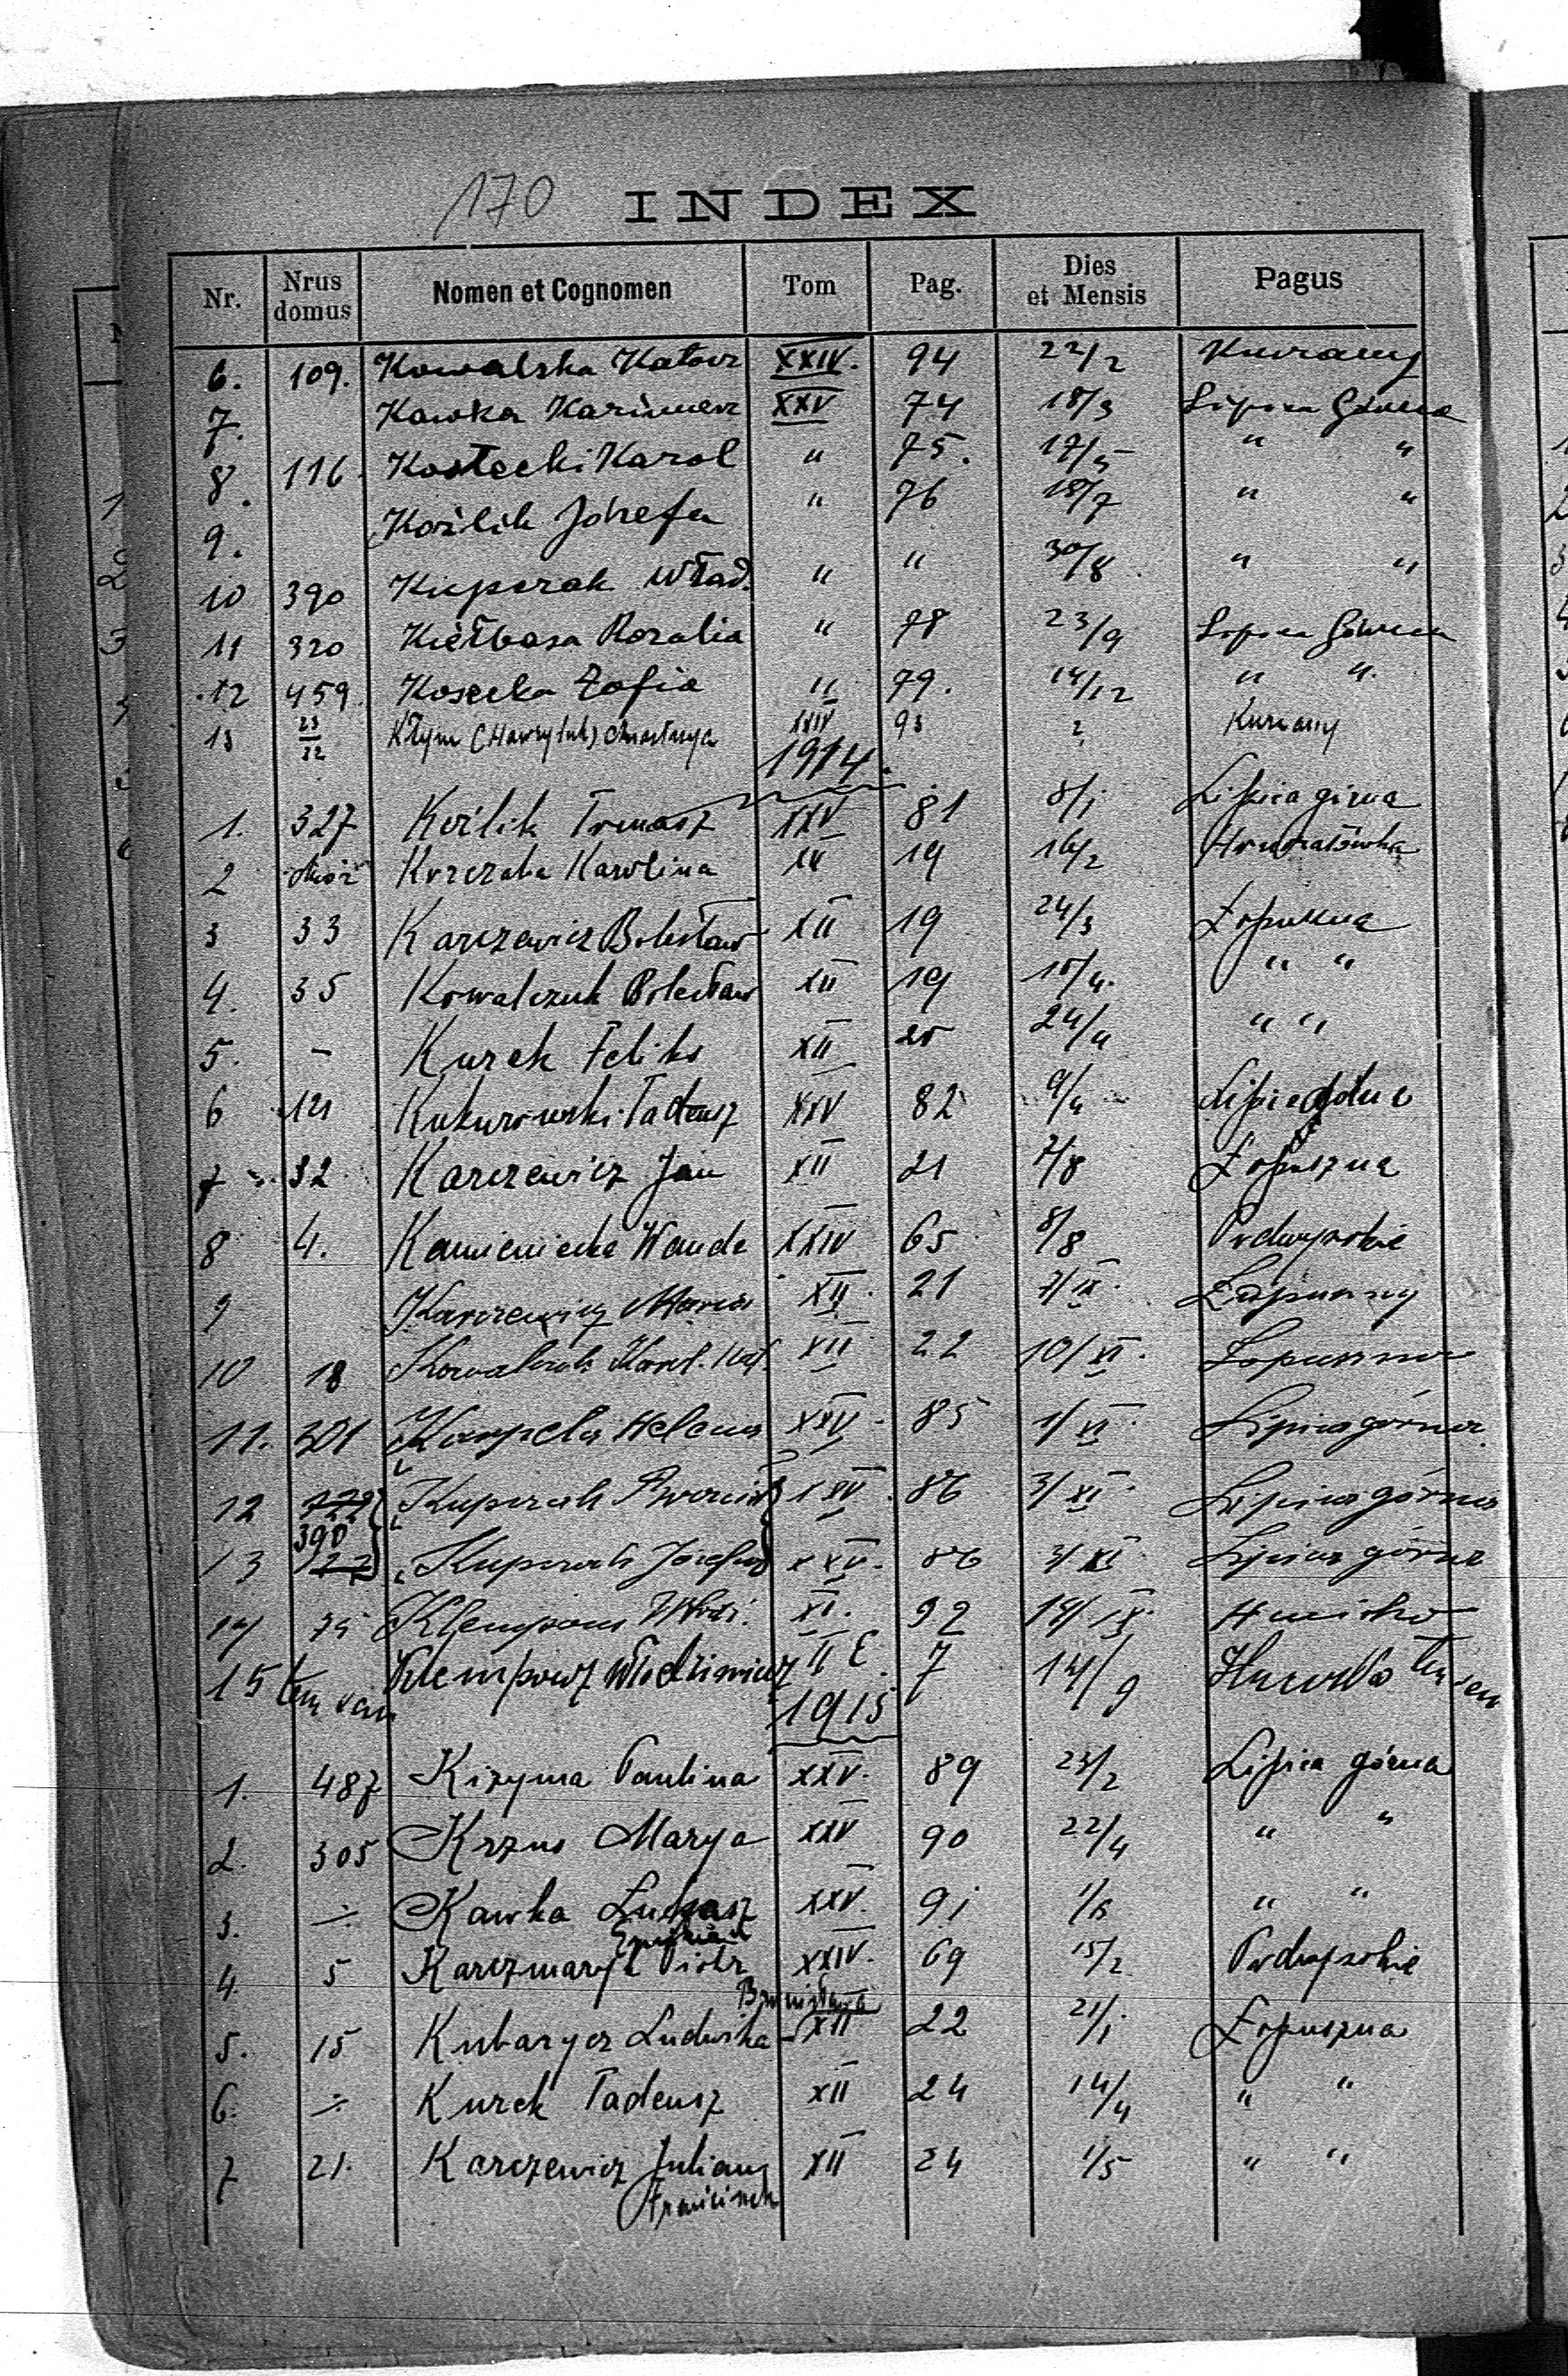 170 INDEX
Nr. Nrus domus Nomen et Cognomen Tom Pag. Dies et Mensis Pagus
6. 109. Kowalska Katarz XXIV. 94 22/2 Kurzany
7. Kawka Kazimierz XXV 74 18/3 Lipica Górna
8. 116 Kostecki Karol " 75. 17/5 " "
9. Koźlik Józefa " 76 18/7 " "
10 390 Kuperak Wład. " " 30/8 " "
11 320 Kiełbasa Rozalia " 78 23/9 Lipica Górna
12 459. Kosecka Zofia " 79. 14/12 " "
13 23/32 Kłym (Hawryluk) Anastazya XXIV 93 ? Kurzany
1914.
1. 327 Koźlik Tomasz XXV 81 8/1 Lipica górna
2 Karolina XV 19 16/2
3 33 Karczewicz Bolesław XII 19 24/3 Łopuszna
4. 35 Kowalczuk Bolesław XII 19 15/4. " "
5. - Kurek Feliks XII 20 24/4 " "
6 121 Kukurowski Tadeusz XXV 82 9/4 Lipica dolna
7 32 Karczewicz Jan XII 21 7/8 Łopuszna
8 4. Kamieniecka Wanda XXIV 65 8/8 Podwysokie
9 Karczewicz Maria XII. 21 7/IX. Łapuszny
10 18 Karol. XII 22 10/XI. Łopuszna
11. 301 Karpela Helena XXV. 85 1/XI. Lipica górna
12 722 Kuperak XXV. 86 3/XI. Lipica górna
390
13 722 Kuperak Józefa XXV. 86 3/XI Lipica górna
14 75 XI. 92 14/IX.
15 Włodzimierz II E. 7 14/9
1915
1. 487 Kizyma Paulina XXV. 89 23/2 Lipica górna
2. 305 Krzus Marya XXV 90 22/4 " "
3. ÷ Kawka Łukasz XXV. 91 1/6 " "
4. 5 Karczmaryk Piotr XXIV. 69 15/2 Podwysokie
Bronisława
5. 15 Kubarycz Ludwika XII 22 21/1 Łopuszna
6. ÷ Kurek Tadeusz XII 24 14/4 " "
7 21. Karczewicz Julian XII 24 1/5 " "
Franciszek